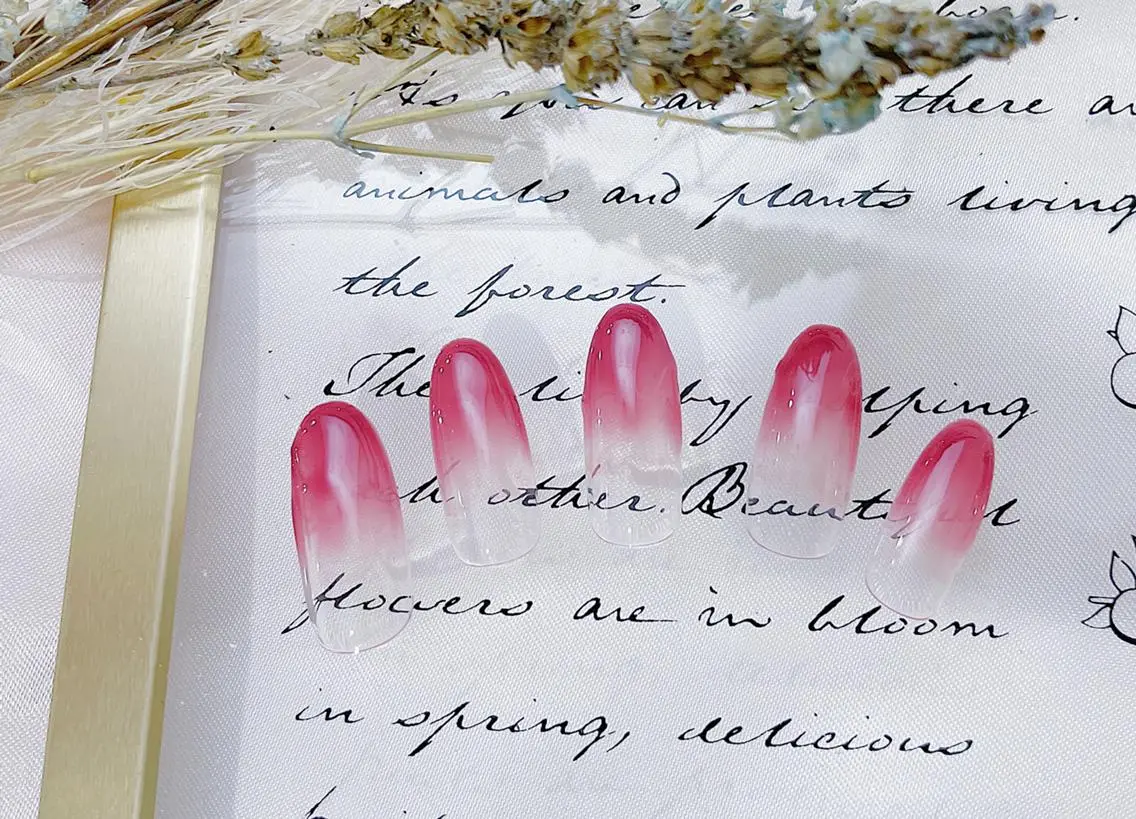 As you can see there are
animals and plants living
the forest.
The li by lping
h other. Beaut l
flowers are in bloom
in spring, delicious